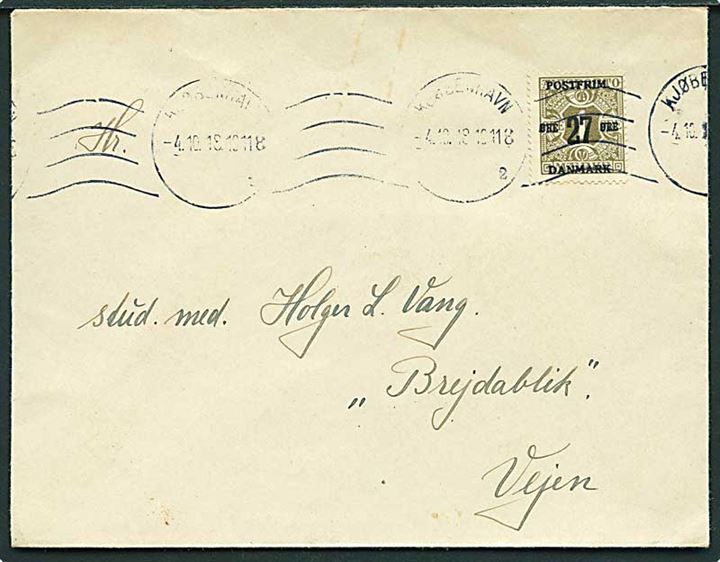 KJØBENHAVN
-4.10.18.1011 8
KJØBENHAVN
-4.10.18.1011 8
2
POSTFRIM.
ØRE 27 ØRE
DANMARK
KJØBE
-4.10.1
Hr.
stud. med. Holger L. Vang.
„Brejdablik".
Vejen